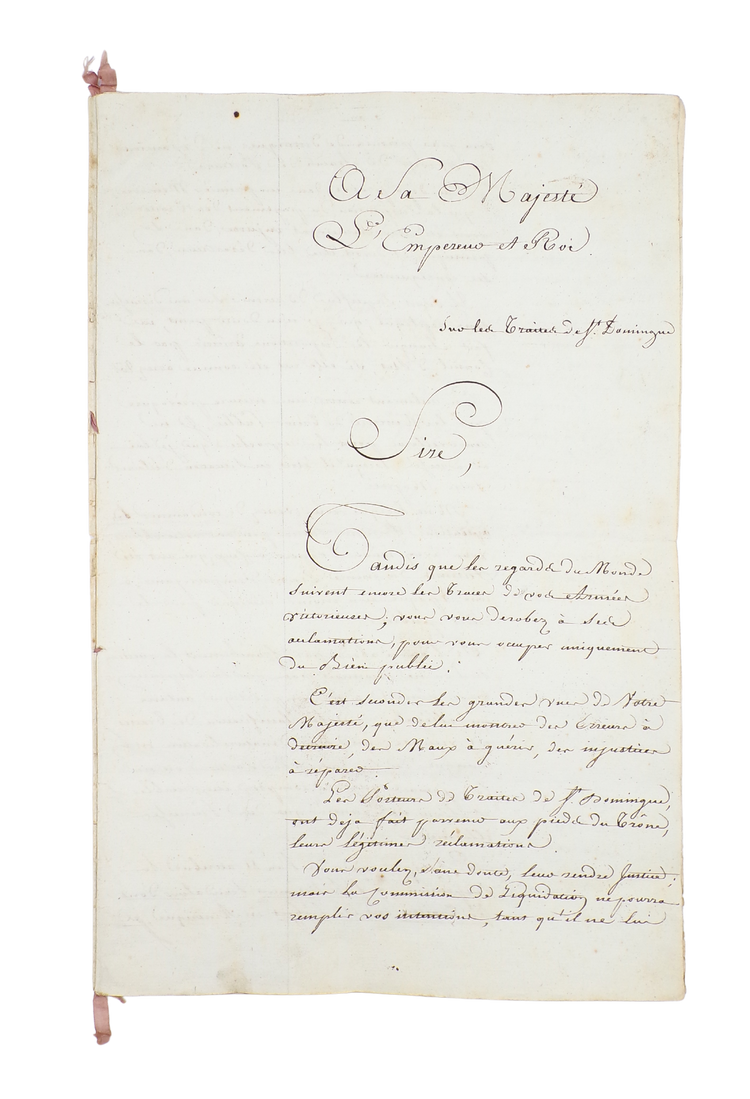 A Sa Majesté
L'Empereur et Roi.
Sur les Traites de St. Domingue
Sire,
Tandis que les regards du Monde
suivent encore les Traces de vos Armées
victorieuses; vous vous derobez à ses
acclamations, pour vous occuper uniquement
du Bien public.
C'est seconder les grandes vues de Votre
Majesté, que de lui montrer des Erreurs à
detruire, des Maux à guérir, des injustices
à réparer.
Les Porteurs de Traites de St. Domingue,
ont deja fait parvenir aux pieds du Trône,
leurs légitimes réclamations.
Vous voulez, sans doute, leur rendre Justice;
mais la Commission de Liquidation ne pourra
remplir vos intentions, tant qu'il ne lui